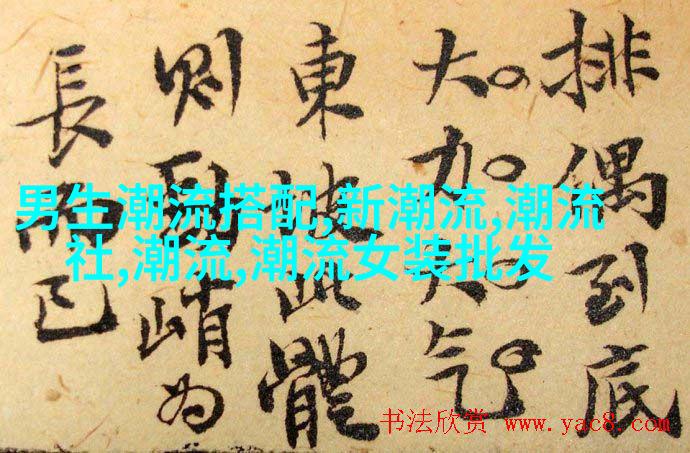 排偶到底
大力大气
東坡此體
則峭為
長而已
男生潮流搭配,新潮流,潮流
社,潮流,潮流女装批发
书法欣赏 www.yac8.com